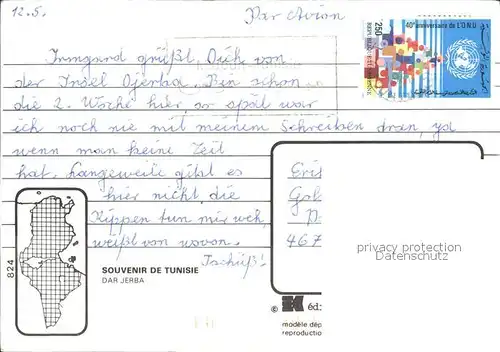 12.5.
Par Avion
Irmgard grüßt Dich von
der Insel Djerba. Bin schon
die 2. Woche hier, so spät war
ich noch nie mit meinem Schreiben dran, ja
wenn man keine Zeit
hat. Langeweile gibt es
hier nicht, die
Rippen tun mir weh,
weißt von wovon.
Tschüß!
40e anniversaire de L'O.N.U
250
824
SOUVENIR DE TUNISIE
DAR JERBA
Eri
Gol
467
privacy protection
Datenschutz
© éd:
modèle dép
reproductio